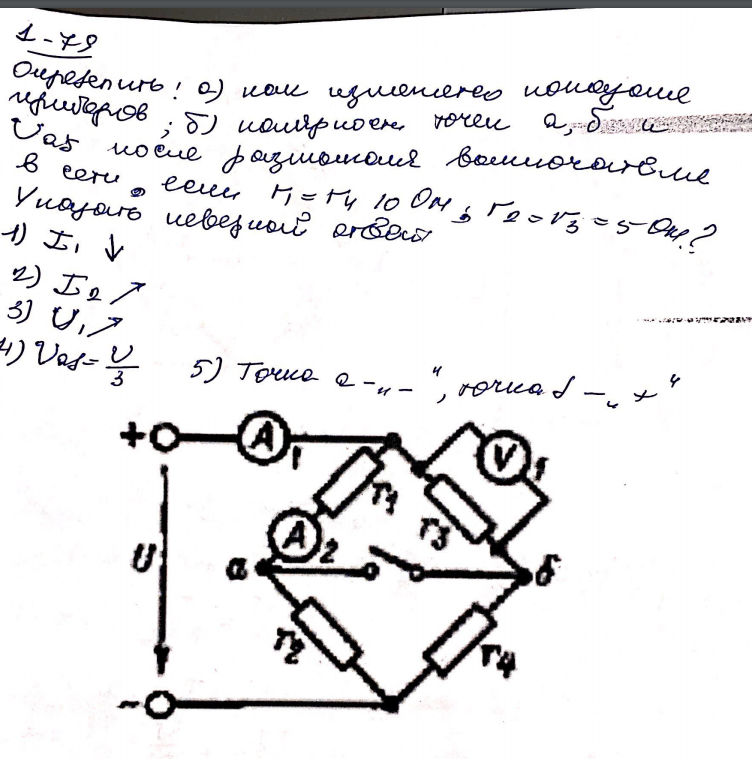 1-79
Определить: а) как изменятся показание
приборов; б) полярность точек а, б и
Uаб после размыкания выключателя
в сети, если r1 = r4 10 Ом; r2 = r3 = 5 Ом?
Указать неверный ответ
1) I1 ↓
2) I2 ↗
3) U1 ↗
4) Uаб = U/3 5) Точка а - „ - ", точка б - „ + "
+ A 1
V 1
r1
r3
A 2
а б
U
r2
r4
-